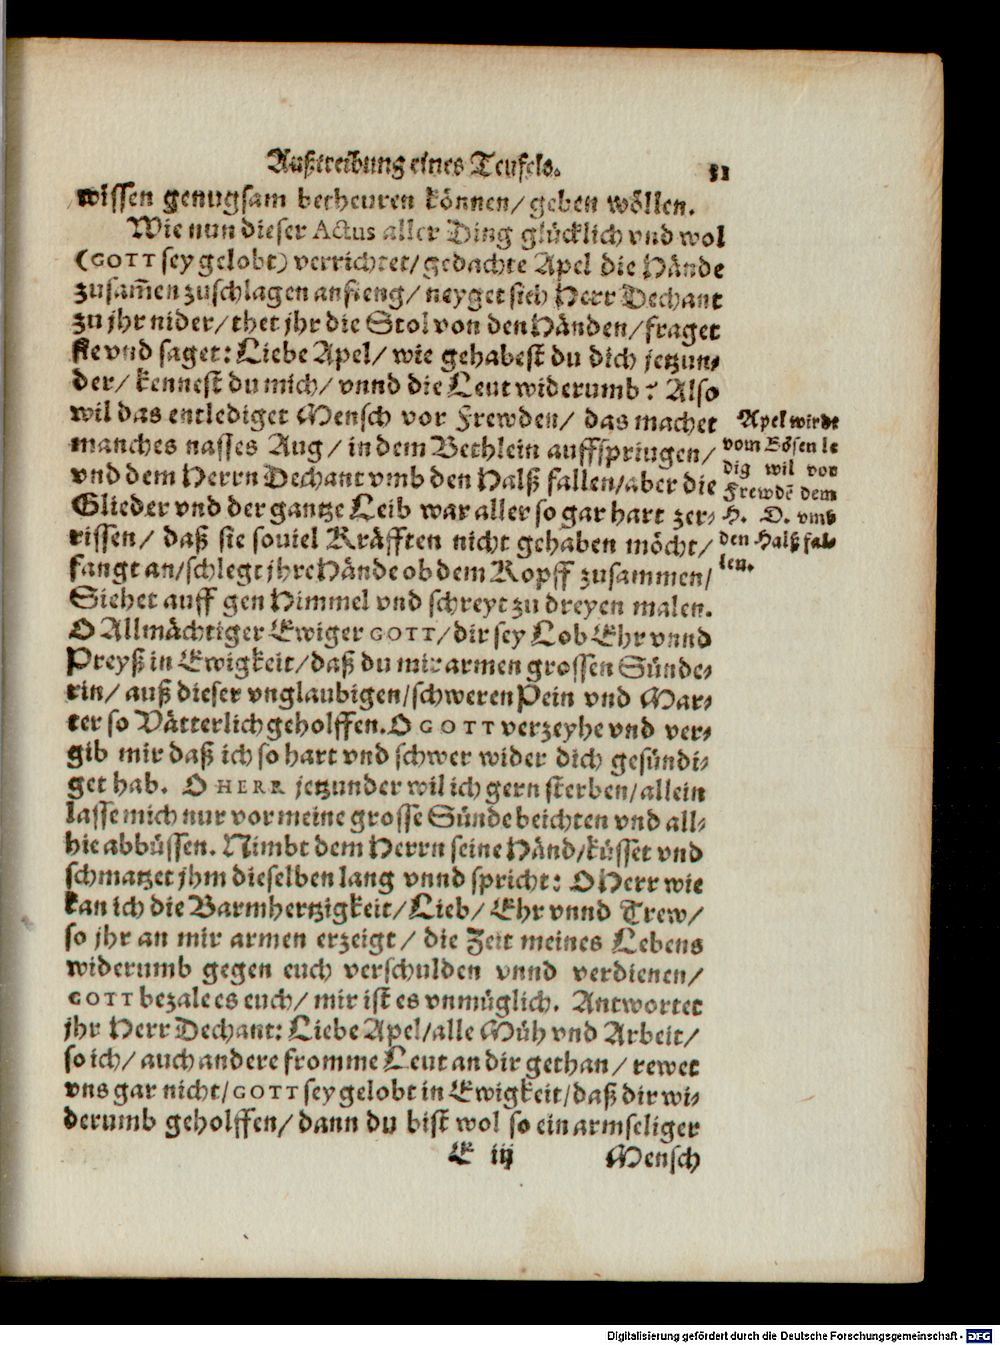 Außtreibung eines Teufels. 31
wissen genugsam betheuren können/ geben wöllen.
Wie nun dieser Actus aller Ding glücklich vnd wol
(GOTT sey gelobt) verrichtet/ gedachte Apel die Hände
zusam̃en zuschlagen anfieng/ neyget sich Herr Dechant
zu jhr nider/ thet jhr die Stol von den Händen/ fraget
sie vnd saget: Liebe Apel/ wie gehabest du dich jetzun-
der/ kennest du mich/ vnnd die Leut widerumb? Also
wil das entlediget Mensch vor Frewden/ das machet
manches nasses Aug/ in dem Bethlein auffspringen/
vnd dem Herrn Dechant vmb den Halß fallen/ aber die
Glieder vnd der gantze Leib war aller so gar hart zer-
rissen/ daß sie souiel Kräfften nicht gehaben möcht/
fangt an/ schlegt jhre Hände ob dem Kopff zusammen/
Siehet auff gen Himmel vnd schreyt zu dreyen malen.
O Allmächtiger Ewiger GOTT/ dir sey Lob Ehr vnnd
Preyß in Ewigkeit/ daß du mir armen grossen Sünde-
rin/ auß dieser vnglaubigen/ schweren Pein vnd Mar-
ter so Vätterlich geholffen. O GOTT verzeyhe vnd ver-
gib mir daß ich so hart vnd schwer wider dich gesündi-
get hab. O HERR jetzunder wil ich gern sterben/ allein
lasse mich nur vor meine grosse Sünde beichten vnd all-
hie abbüssen. Nimbt dem Herrn seine Händ/ küsset vnd
schmatzet jhm dieselben lang vnnd spricht: O Herr wie
kan ich die Barmhertzigkeit/ Lieb/ Ehr vnnd Trew/
so jhr an mir armen erzeigt/ die Zeit meines Lebens
widerumb gegen euch verschulden vnnd verdienen/
GOTT bezale es euch/ mir ist es vnmüglich. Antwortet
jhr Herr Dechant: Liebe Apel/ alle Müh vnd Arbeit/
so ich/ auch andere fromme Leut an dir gethan/ rewet
vns gar nicht/ GOTT sey gelobt in Ewigkeit/ daß dir wi-
derumb geholffen/ dann du bist wol so ein armseliger
E iij Mensch
Apel wirdt
vom Bösen le
dig wil vor
Frewdẽ dem
H. D. vmb
den Halß fal-
len.
Digitalisierung gefördert durch die Deutsche Forschungsgemeinschaft - DFG